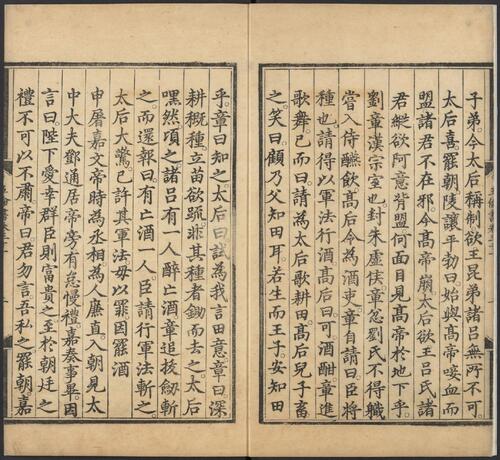 子弟。今太后稱制欲王昆弟諸呂無所不可。
太后喜罷朝陵讓平勃曰始與高帝啑血而
盟諸君不在邪今高帝崩太后欲王吕氏諸
君縱欲阿意背盟何面目見高帝於地下乎。
劉章漢宗室也封朱虛侯章忿劉氏不得職
嘗入侍醼飲高后令為酒吏章自請曰臣將
種也請得以軍法行酒高后曰可酒酣章進
歌舞已而曰請為太后歌耕田高后兒子畜
之笑曰顧乃父知田耳若生而王子安知田
乎。章曰知之太后曰試為我言田意章曰深
耕概種立苗欲疏非其種者鋤而去之太后
嘿然頃之諸吕有一人醉亡酒章追拔劒斬
之而還報曰有亡酒一人臣請行軍法斬之
太后大驚已許其軍法毋以罪因罷酒
申屠嘉文帝時為丞相為人廉直入朝見太
中大夫鄧通居帝旁有怠慢禮嘉奏事畢因
言曰陛下愛幸群臣則富貴之至於朝廷之
禮不可以不肅帝曰君勿言吾私之罷朝嘉